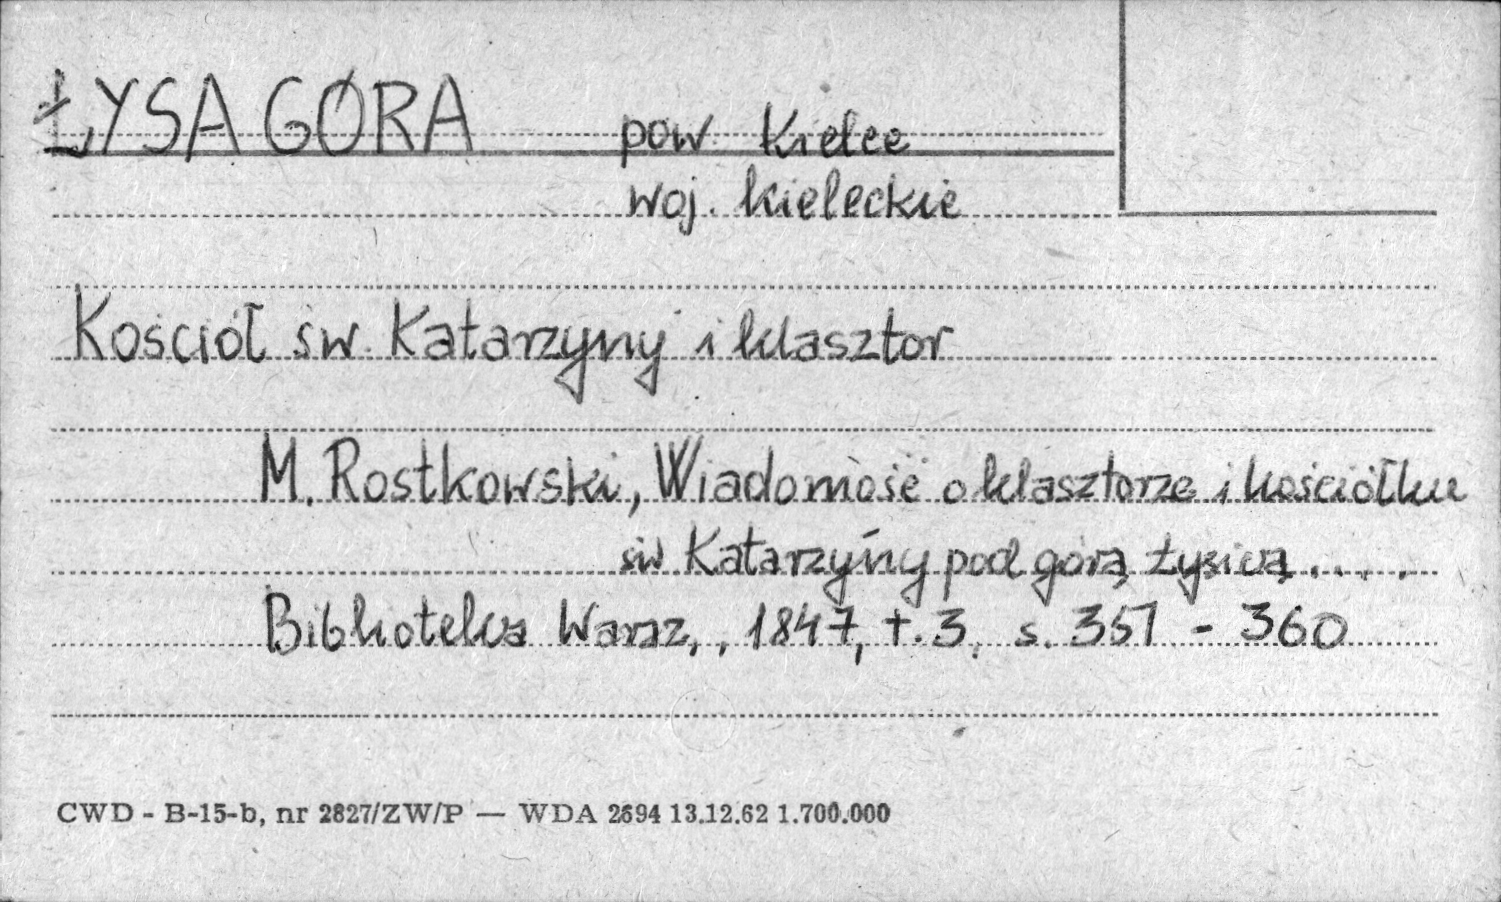 ŁYSA GÓRA pow. Kielce
woj. kieleckie
Kościół św. Katarzyny i klasztor
M. Rostkowski, Wiadomość o klasztorze i kościółku
św Katarzyny pod górą Łysicą....
Biblioteka Warsz., 1847, t. 3, s. 351 - 360
CWD - B-15-b, nr 2827/ZW/P — WDA 2694 13.12.62 1.700.000